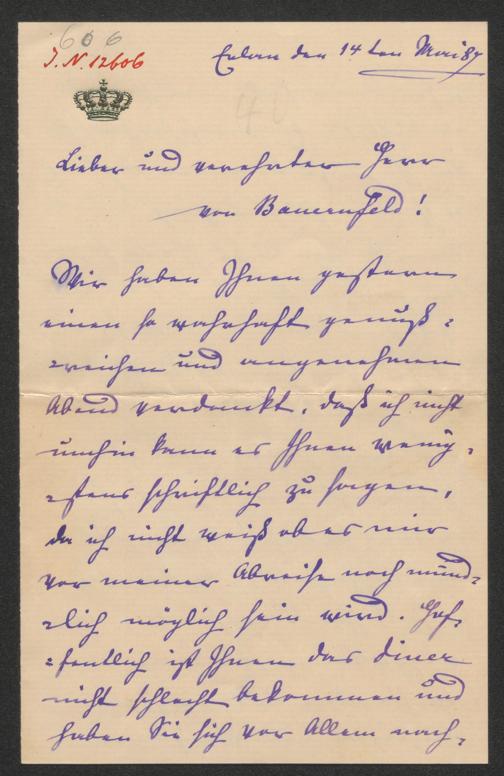 606
J.N. 12606
Erlaa den 14ten Mai 87
40
Lieber und verehrter Herr
von Bauernfeld!
Wir haben Ihnen gestern
einen so wahrhaft genuß-
-reichen und angenehmen
Abend verdankt, daß ich nicht
umhin kann es Ihnen wenig-
-stens schriftlich zu sagen,
da ich nicht weiß ob es mir
vor meiner Abreise noch münd-
-lich möglich sein wird. Hof-
-fentlich ist Ihnen das diner
nicht schlecht bekommen und
haben Sie sich vor Allem nach-